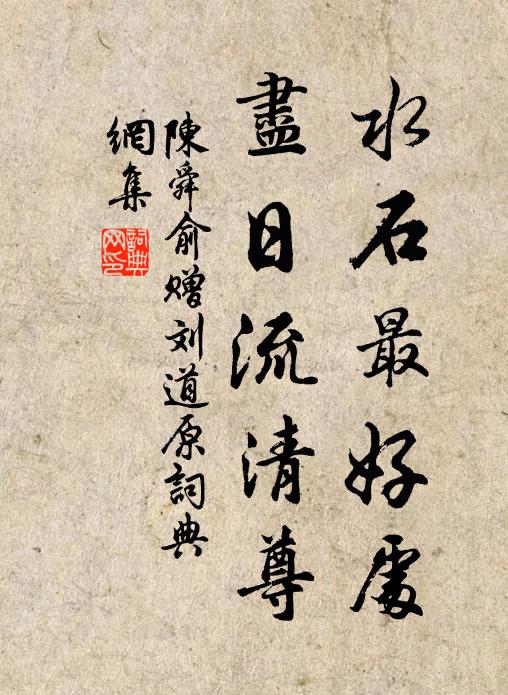 水石最好處
盡日流清尊
陳舜俞赠刘道原詞典
網集
詞典
网印